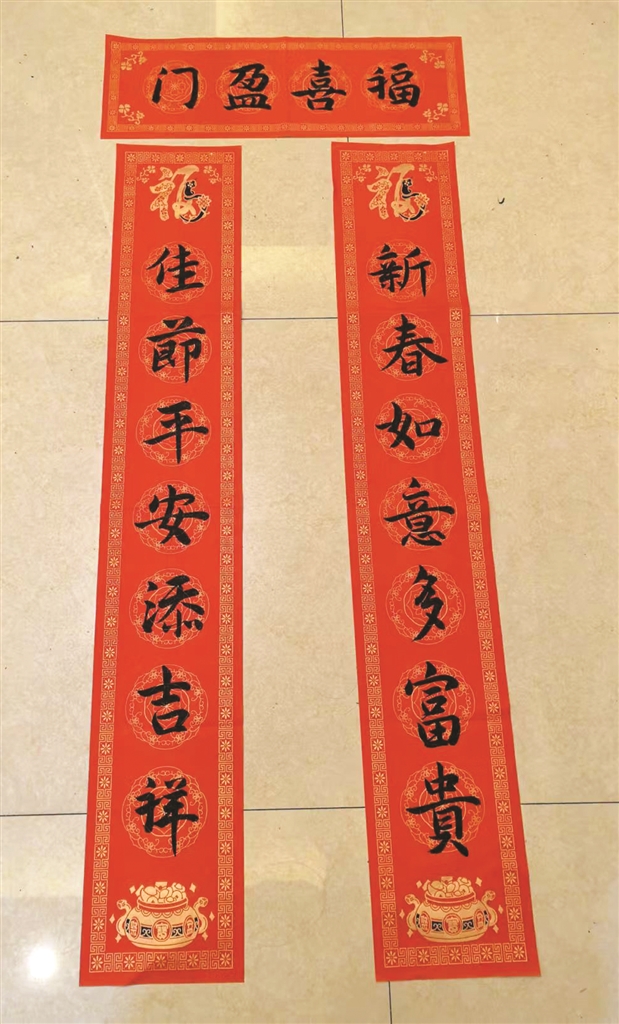 福喜盈门
福
新春如意多富貴
福
佳節平安添吉祥